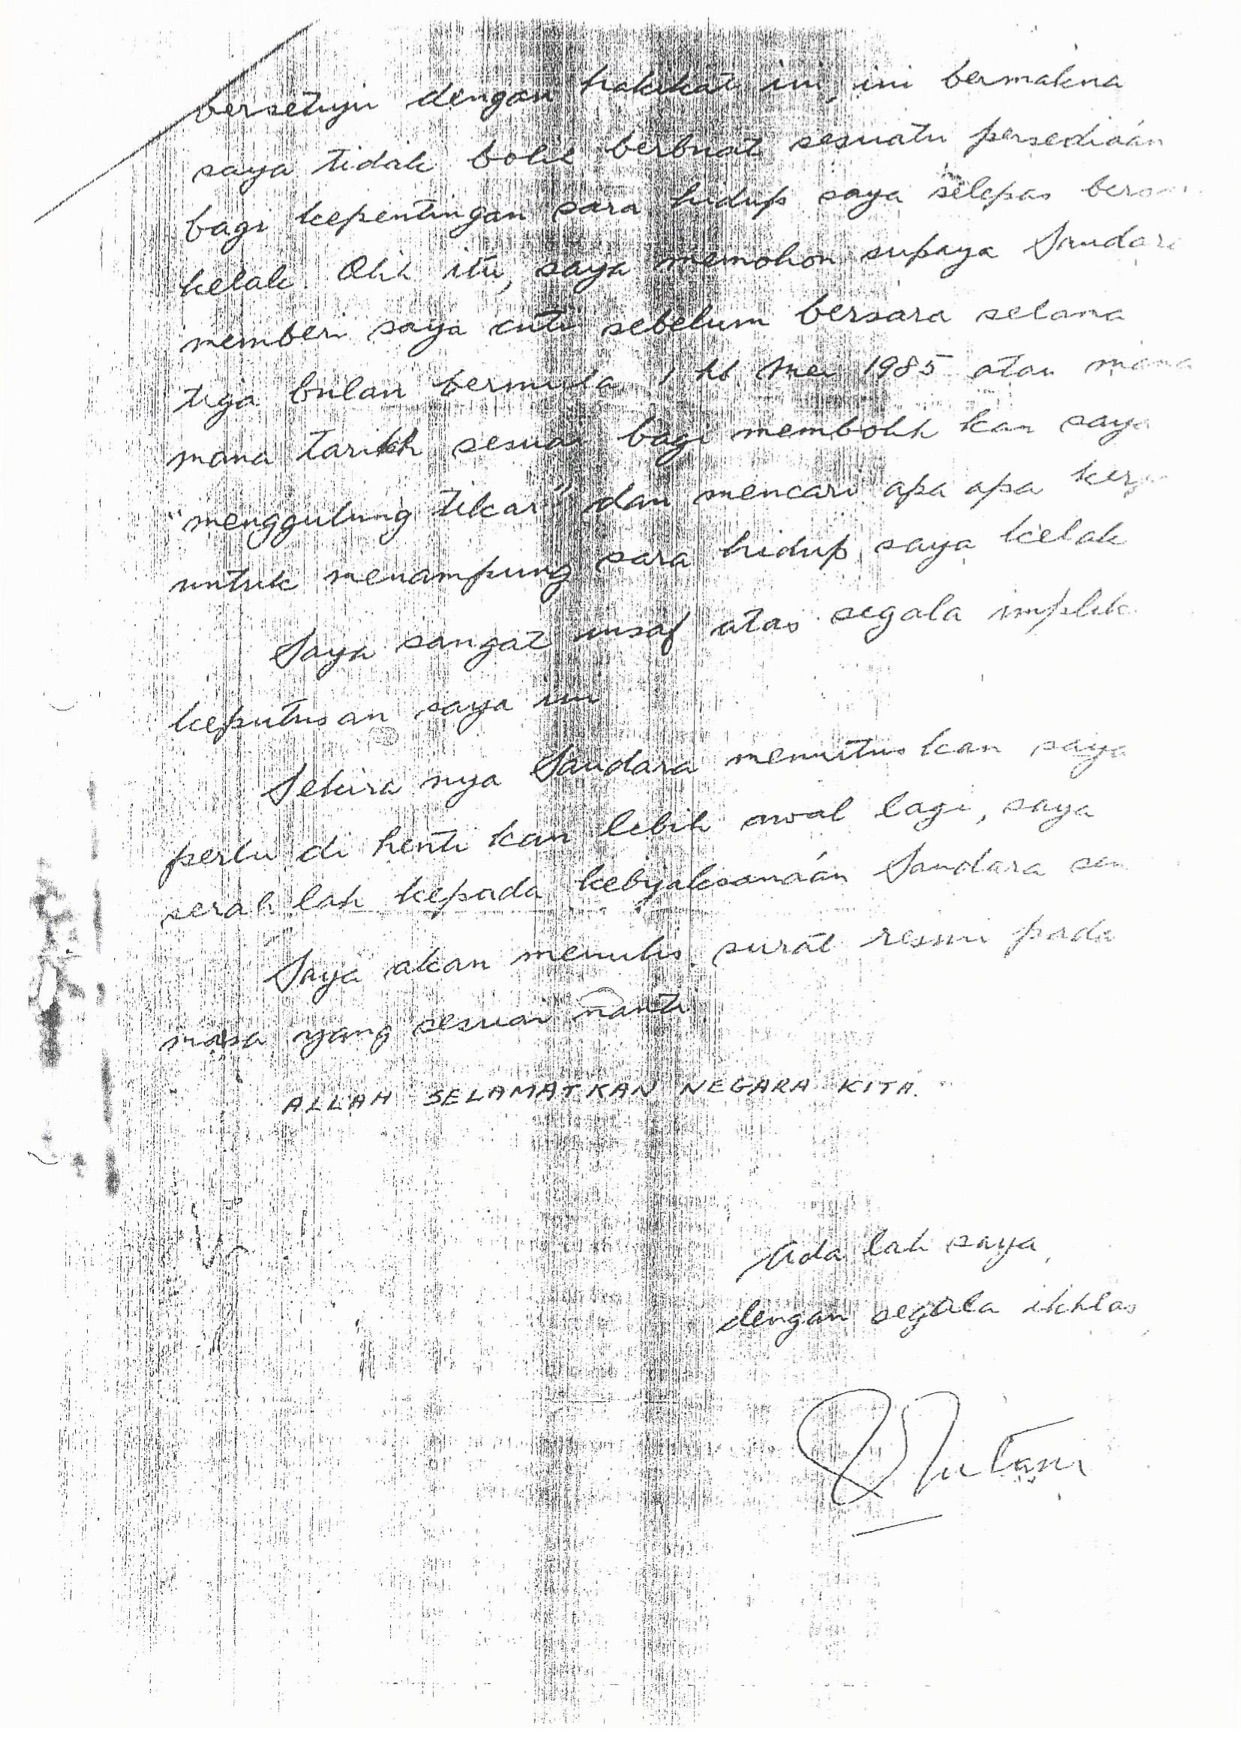 bersetuju dengan hakikat ini, ini bermakna
saya tidak boleh berbuat sesuatu persediaán
bagi kepentingan sara hidup saya selepas
kelak. Oleh itu, saya memohon supaya Saudara
memberi saya cuti sebelum bersara selama
tiga bulan bermula 1 hb Mei 1985 atau mana
mana tarikh sesuai bagi meniboleh kan saya
"menggulung tikar" dan mencari apa apa
untuk menampung sara hidup saya kelak
Saya sangat insaf atas segala
keputusan saya ini
Sekira nya Saudara memutus kan saya
perlu di henti kan lebih awal lagi, saya
serah lah kepada kebijaksanaán Saudara
Saya akan menulis surat resmi pada
masa yang sesuai nanti
ALLAH SELAMATKAN NEGARA KITA.
Ada lah saya,
dengan segala ikhlas,